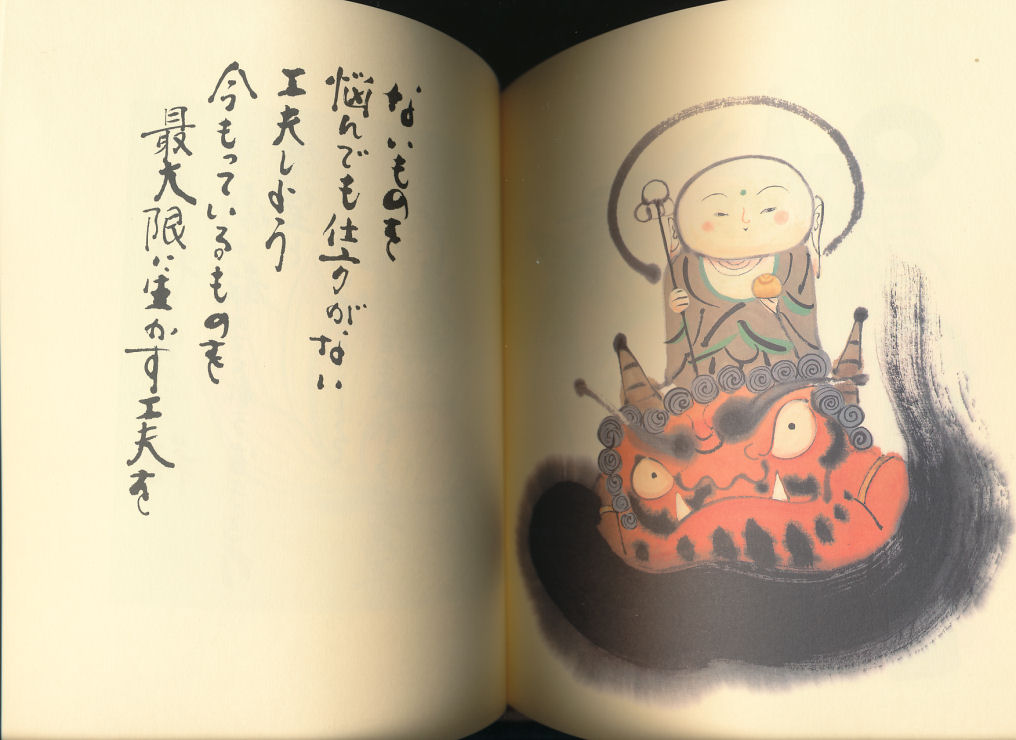 ないものを
悩んでも仕方がない
工夫しよう
今もっているものを
最大限に生かす工夫を